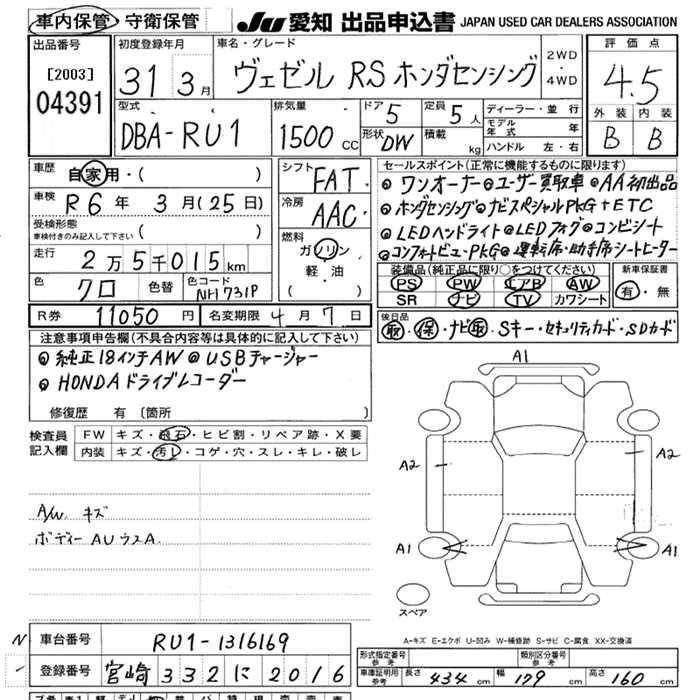 車内保管・守衛保管
JU 愛知 出品申込書 JAPAN USED CAR DEALERS ASSOCIATION
出品番号
[2003]
04391
初度登録年月
31年3月
車名・グレード
ヴェゼル RS ホンダセンシング
2WD・4WD
評価点
4.5
外装 内装
B B
型式
DBA-RU1
排気量
1500 CC
ドア 5
形状 DW
定員 5人
積載 kg
ディーラー・並行
モデル年式
ハンドル 左・右
車歴 自家用・( )
車検 R6年3月(25日)
受検形態
車検付きのみ記入して下さい ( )
走行 2万5千015km
色 クロ 色替 色コード NH731P
シフト FAT
冷房 AAC
燃料
ガソリン
軽・油
( )
R券 11050円 名変期限 4月7日
セールスポイント(正常に機能するものに限ります)
◎ワンオーナー◎ユーザー買取車◎AA初出品
◎ホンダセンシング◎ナビスペシャルPKG+ETC
◎LEDヘッドライト◎LEDフォグ◎コンビシート
◎コンフォートビューPKG◎運転席・助手席シートヒーター
装備品(純正品に限り○をつけてください)
PS PW エアB AW
SR ナビ TV カワシート
新車保証書
有・無
後日品
取・保・ナビ取・Sキー・セキュリティカード・SDカード
注意事項申告欄(不具合内容等は具体的に記入して下さい)
◎純正18インチAW◎USBチャージャー
◎HONDAドライブレコーダー
修復歴 有 〔箇所
検査員記入欄
FW キズ・飛石・ヒビ割・リペア跡・X要
内装 キズ・汚レ・コゲ・穴・スレ・キレ・破レ
A/W キズ
ボディーAUウスA
A1
A2 A2
A1 A1
スペア
A-キズ E-エクボ U-凹み W-補修跡 S-サビ C-腐食 XX-交換済
車台番号 RU1-1316169
登録番号 宮崎 332 に 2016
形式指定番号 参考 類別区分番号 参考
車庫証明用 参考 長さ 434 cm 幅 179 cm 高さ 160 cm